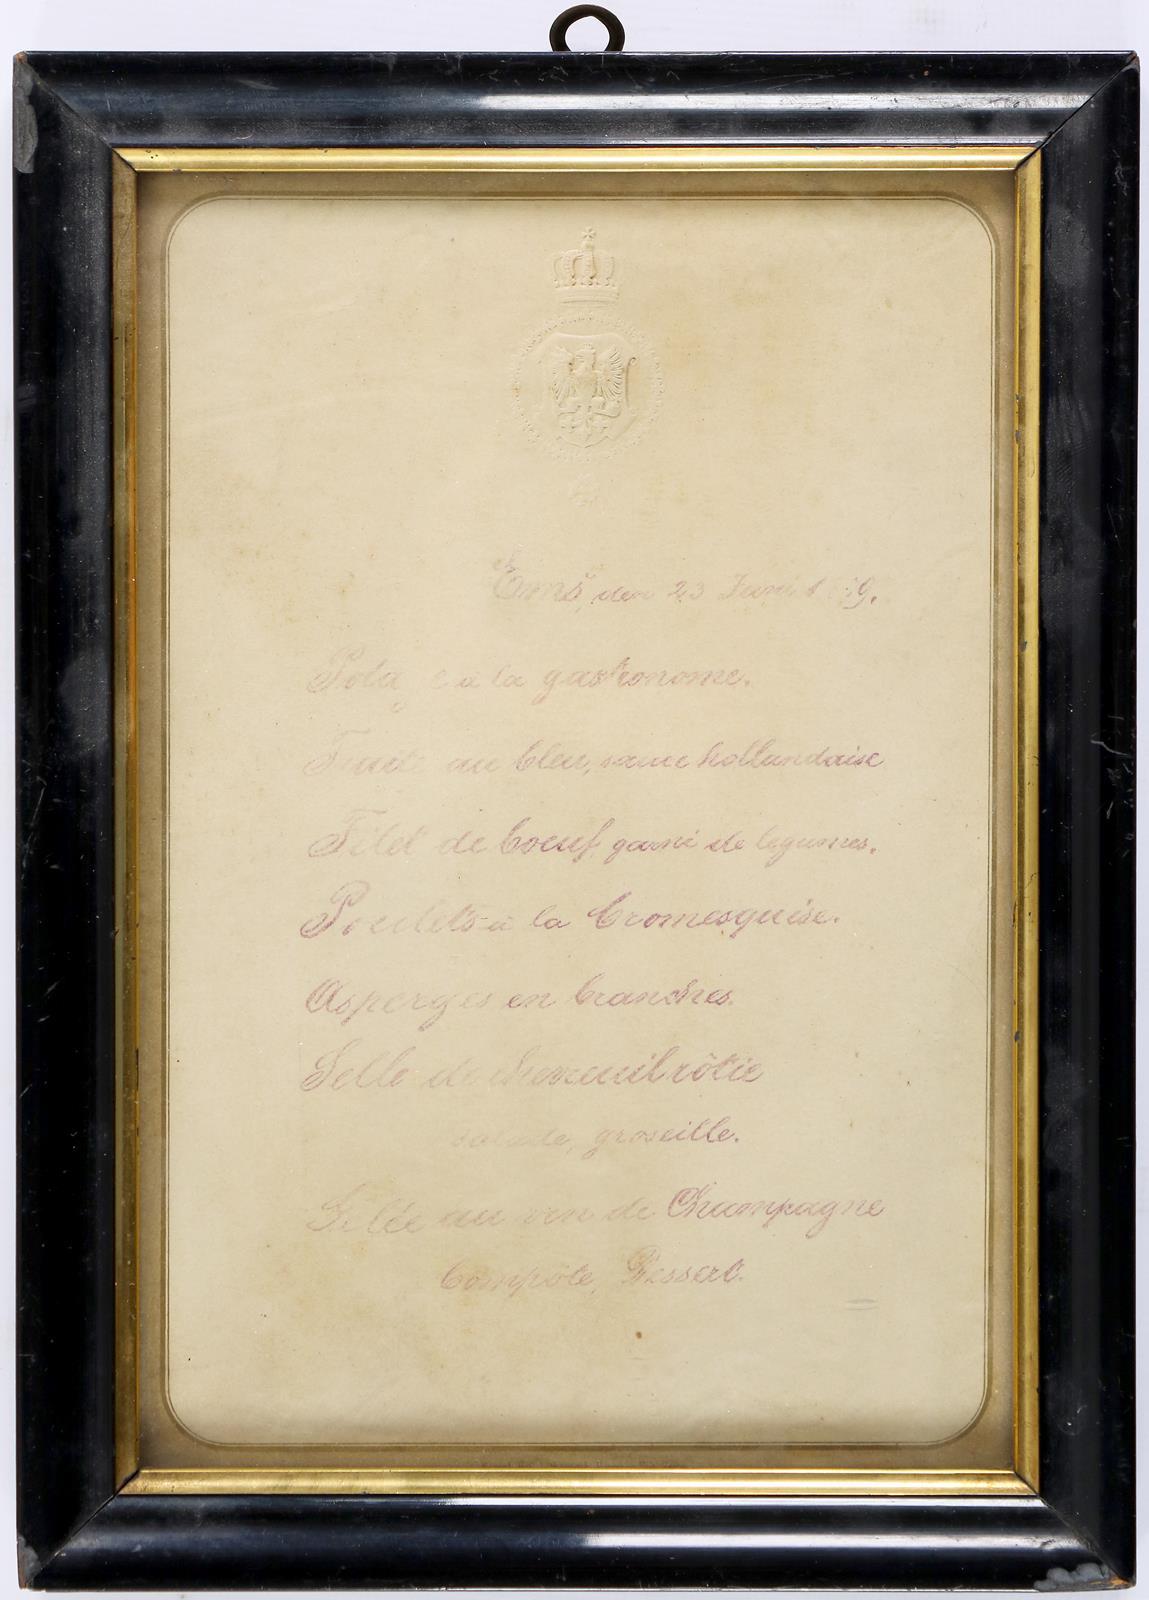 Ems, den 23 Juni
Potage à la gastronome.
Truite au bleu, sauce hollandaise
Filet de boeuf, garni de legumes.
Poulets à la bromesquise.
Asperges en branches.
Selle de chevreuil rôtie
salade, groseille.
Gelée au vin de Champagne
Compôte, Dessert.